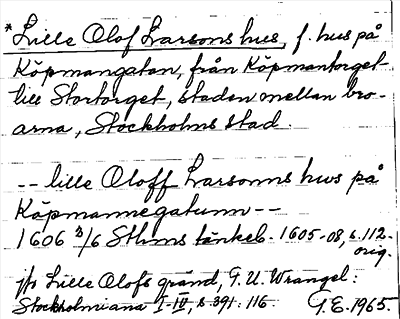 * Lille Olof Larsons hus, f. hus på
Köpmangatan, från Köpmantorget
till Stortorget, staden mellan bro-
arna, Stockholms stad.
-- lille Oloff Larsonns hws på
Köpmannegatunn --
1606 /6 Sthms tänkeb. 1605-08, s. 112.
orig.
jfr Lille Olofs gränd, F. U. Wrangel:
Stockholmiana I-IV, s. 391. 116. G.E. 1965.